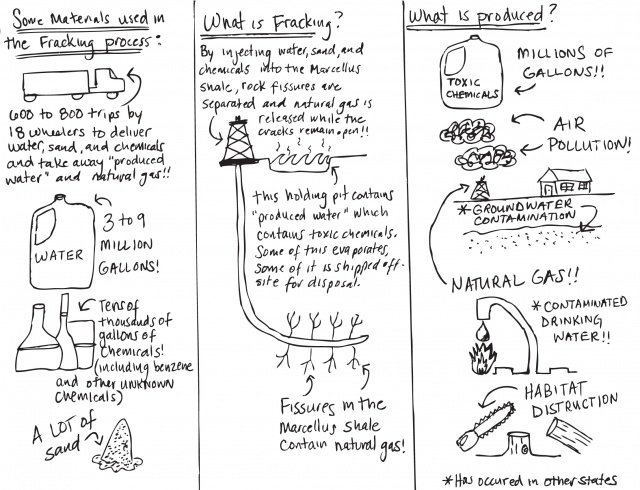 Some Materials used in
the Fracking process:
600 to 800 trips by
18 wheelers to deliver
water, sand, and chemicals
and take away "produced
water" and natural gas!!
WATER
3 to 9
MILLION
GALLONS!
Tens of
thousands of
gallons of
Chemicals!
(including benzene
and other UNKNOWN
Chemicals)
A LOT of
sand
What is Fracking?
By injecting water, sand, and
chemicals into the Marcellus
shale, rock fissures are
separated and natural gas is
released while the
cracks remain open!!
This holding pit contains
"produced water" which
contains toxic chemicals.
Some of this evaporates,
some of it is shipped off-
site for disposal.
Fissures in the
Marcellus shale
contain natural gas!
What is produced?
TOXIC
CHEMICALS
MILLIONS OF
GALLONS!!
AIR
POLLUTION!
*GROUNDWATER
CONTAMINATION
NATURAL GAS!!
*CONTAMINATED
DRINKING
WATER!!
HABITAT
DISTRUCTION
*Has occured in other states